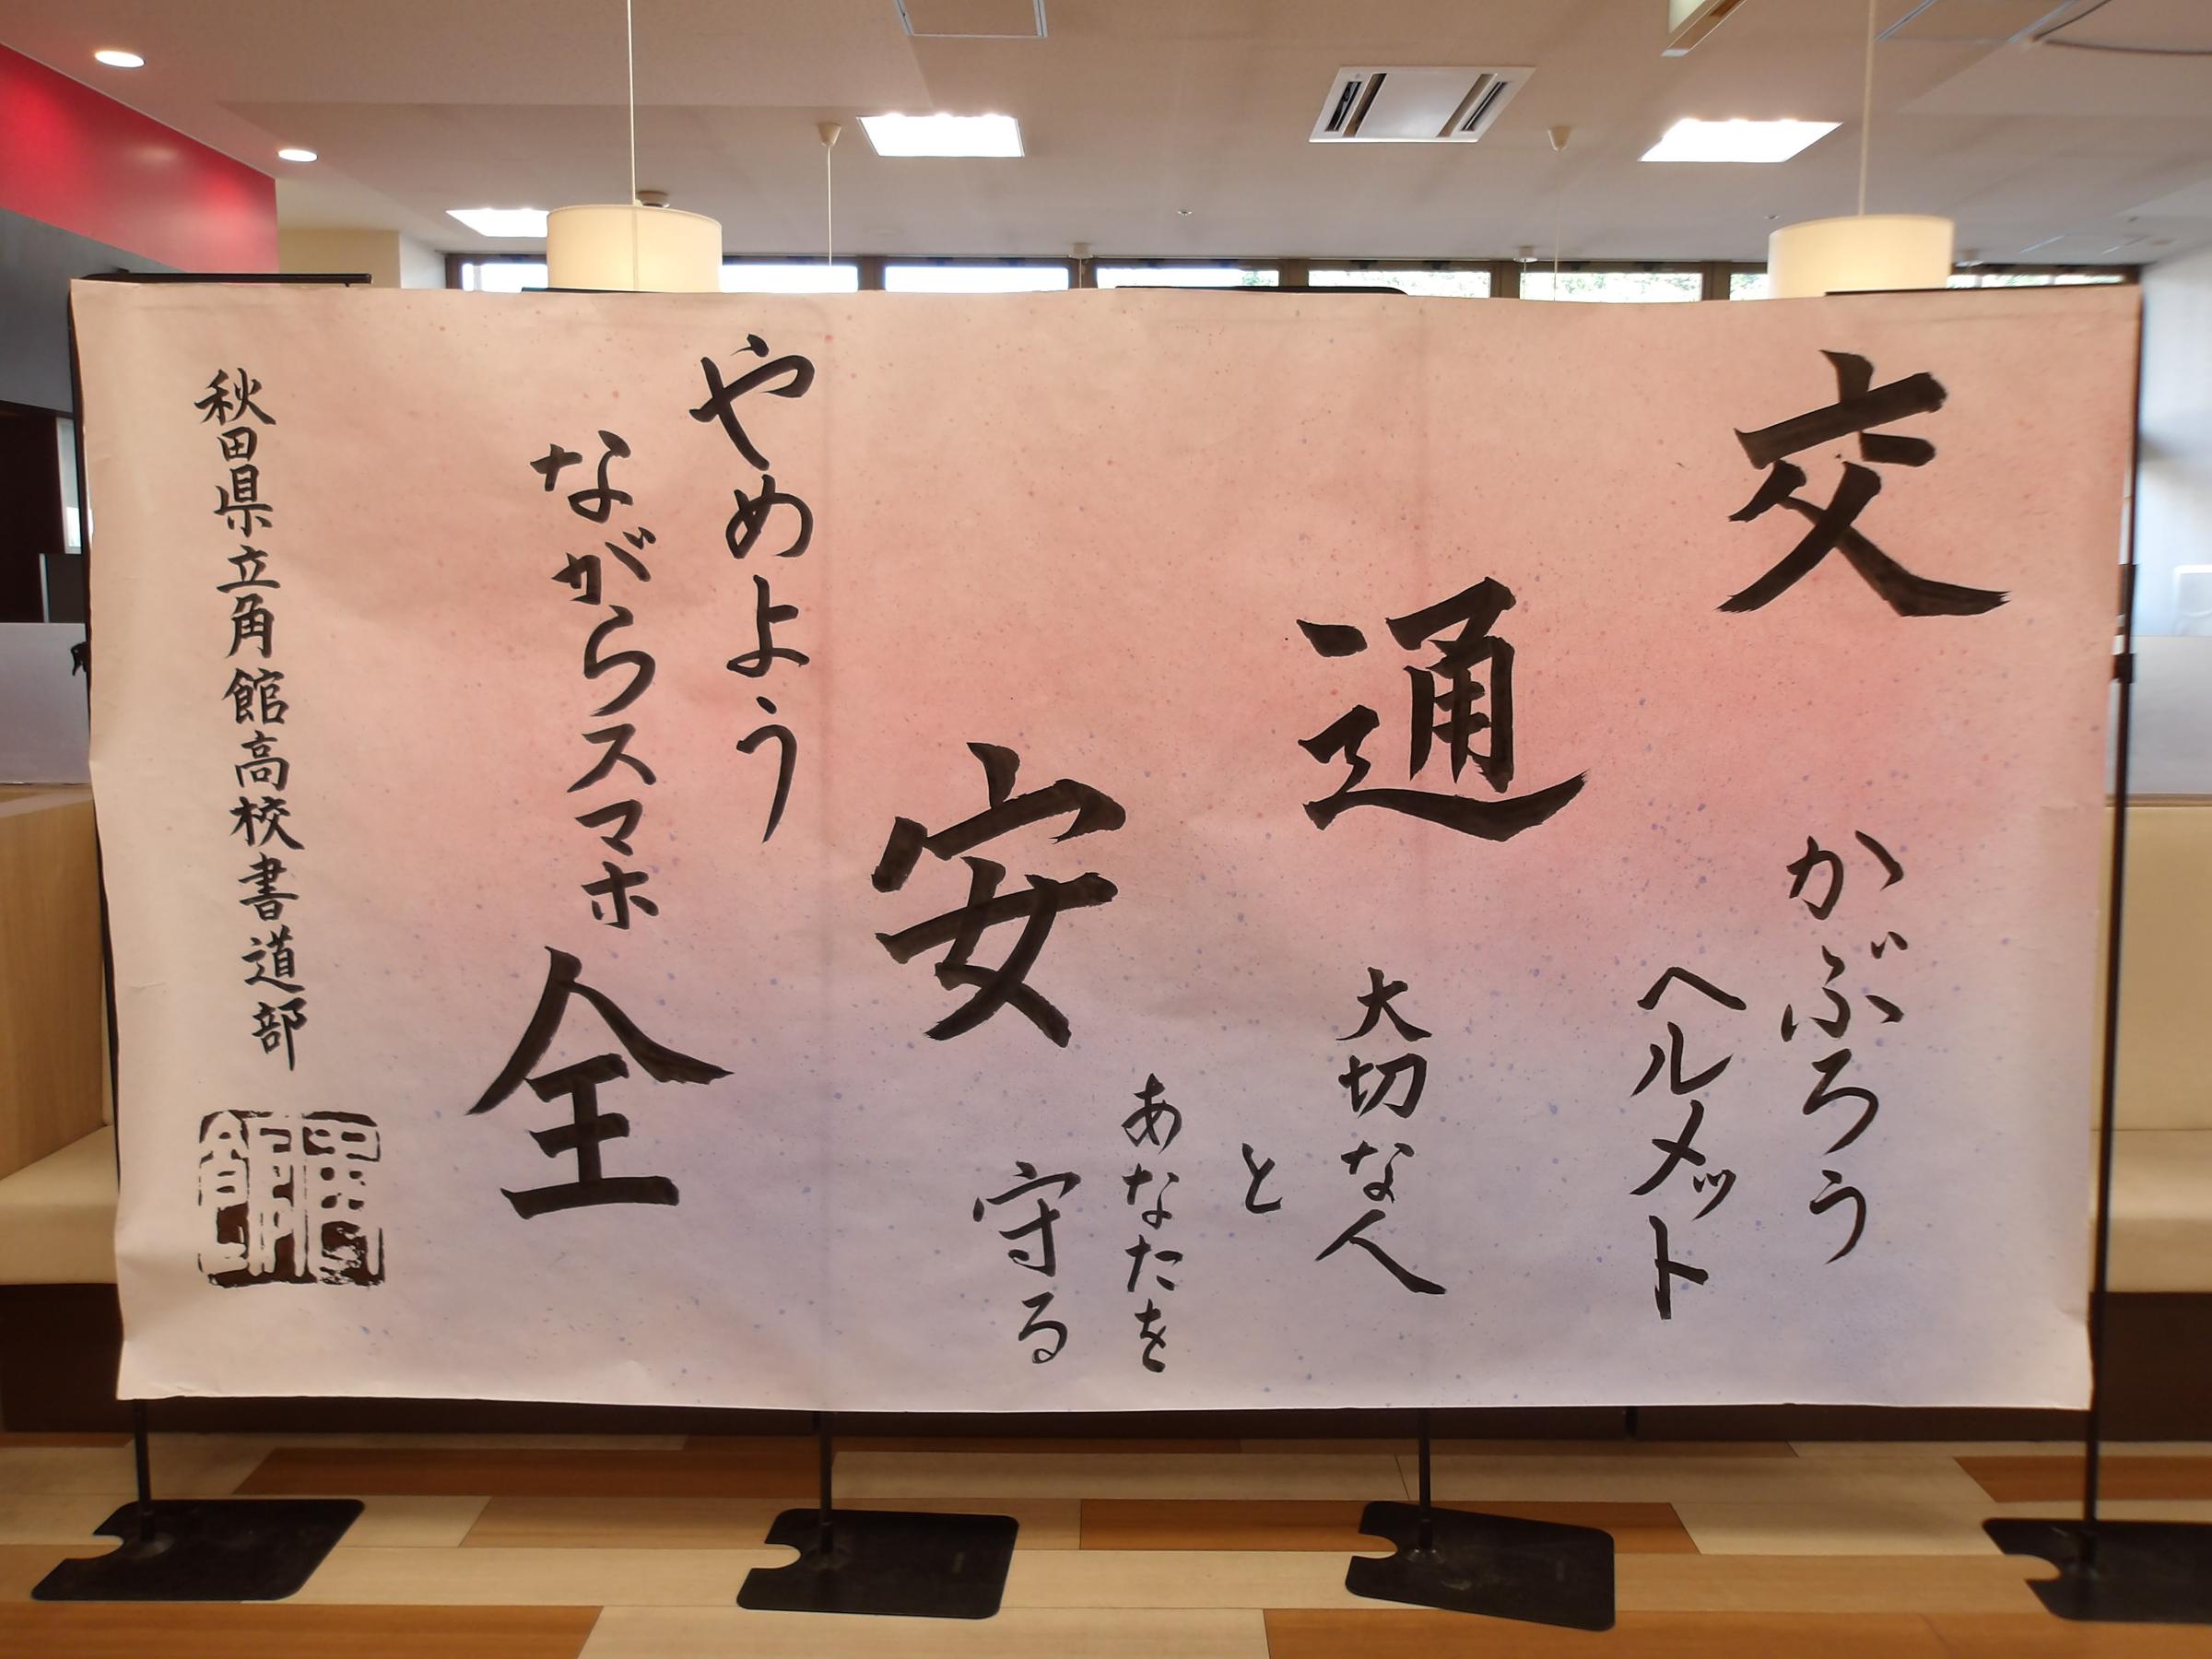 交通安全
かぶろう
ヘルメット
大切な人
と
あなたを
守る
やめよう
ながらスマホ
秋田県立角館高校書道部